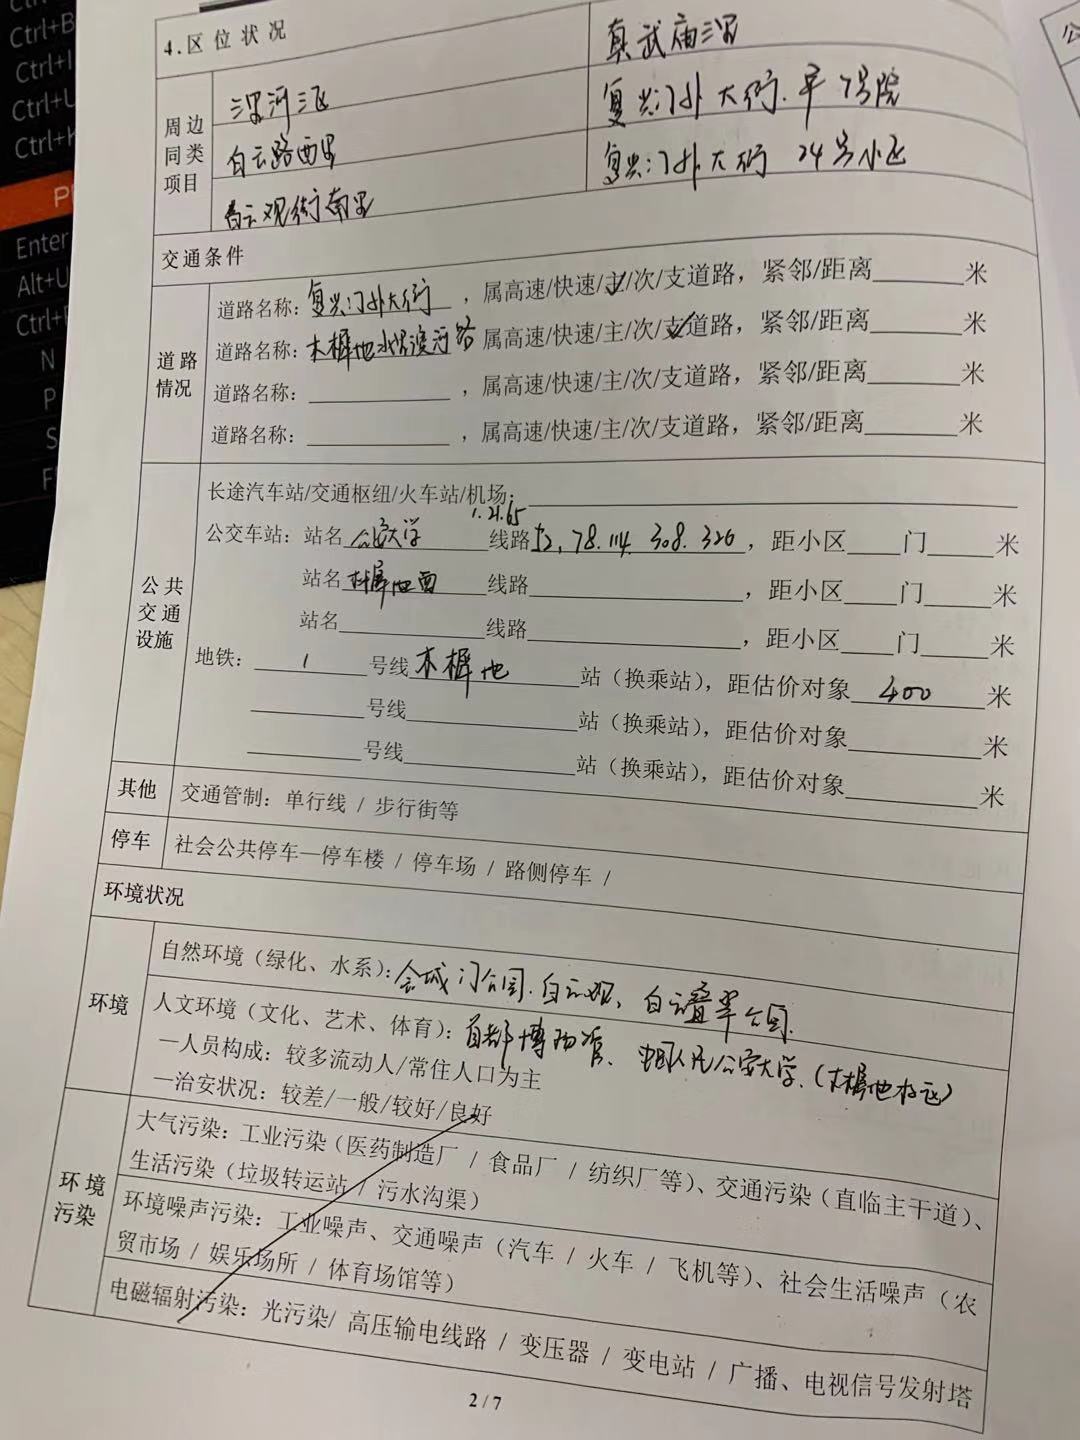 Ctrl+B
Ctrl+I
Ctrl+U
Ctrl+K
Enter
Alt+U
Ctrl+
N
P
S
F
4.区位状况
真武庙
周边同类项目
复兴门外大街.甲7号院
白云路西里
复兴门外大街 24号小区
白云观街南里
交通条件
道路情况
道路名称：复兴门外大街，属高速/快速/主/次/支道路，紧邻/距离______米
道路名称：木樨地北里滨河路 属高速/快速/主/次/支道路，紧邻/距离______米
道路名称：__________，属高速/快速/主/次/支道路，紧邻/距离______米
道路名称：__________，属高速/快速/主/次/支道路，紧邻/距离______米
公共交通设施
长途汽车站/交通枢纽/火车站/机场：__________
1.21.65
公交车站：站名 公安大学 线路52，78.114.308.320，距小区____门____米
站名 木樨地西 线路__________，距小区____门____米
站名__________线路__________，距小区____门____米
地铁：1号线 木樨地 站（换乘站），距估价对象 400 米
______号线__________站（换乘站），距估价对象______米
______号线__________站（换乘站），距估价对象______米
其他 交通管制：单行线 / 步行街等
停车 社会公共停车—停车楼 / 停车场 / 路侧停车 /
环境状况
环境
自然环境（绿化、水系）：会城门公园.白云观、白云叠翠公园.
人文环境（文化、艺术、体育）：首都博物馆、中国人民公安大学.（木樨地校区）
—人员构成：较多流动人/常住人口为主
—治安状况：较差/一般/较好/良好
环境污染
大气污染：工业污染（医药制造厂 / 食品厂 / 纺织厂等）、交通污染（直临主干道）、
生活污染（垃圾转运站 / 污水沟渠）
环境噪声污染：工业噪声、交通噪声（汽车 / 火车 / 飞机等）、社会生活噪声（农
贸市场 / 娱乐场所 / 体育场馆等）
电磁辐射污染：光污染/ 高压输电线路 / 变压器 / 变电站 / 广播、电视信号发射塔
2 / 7